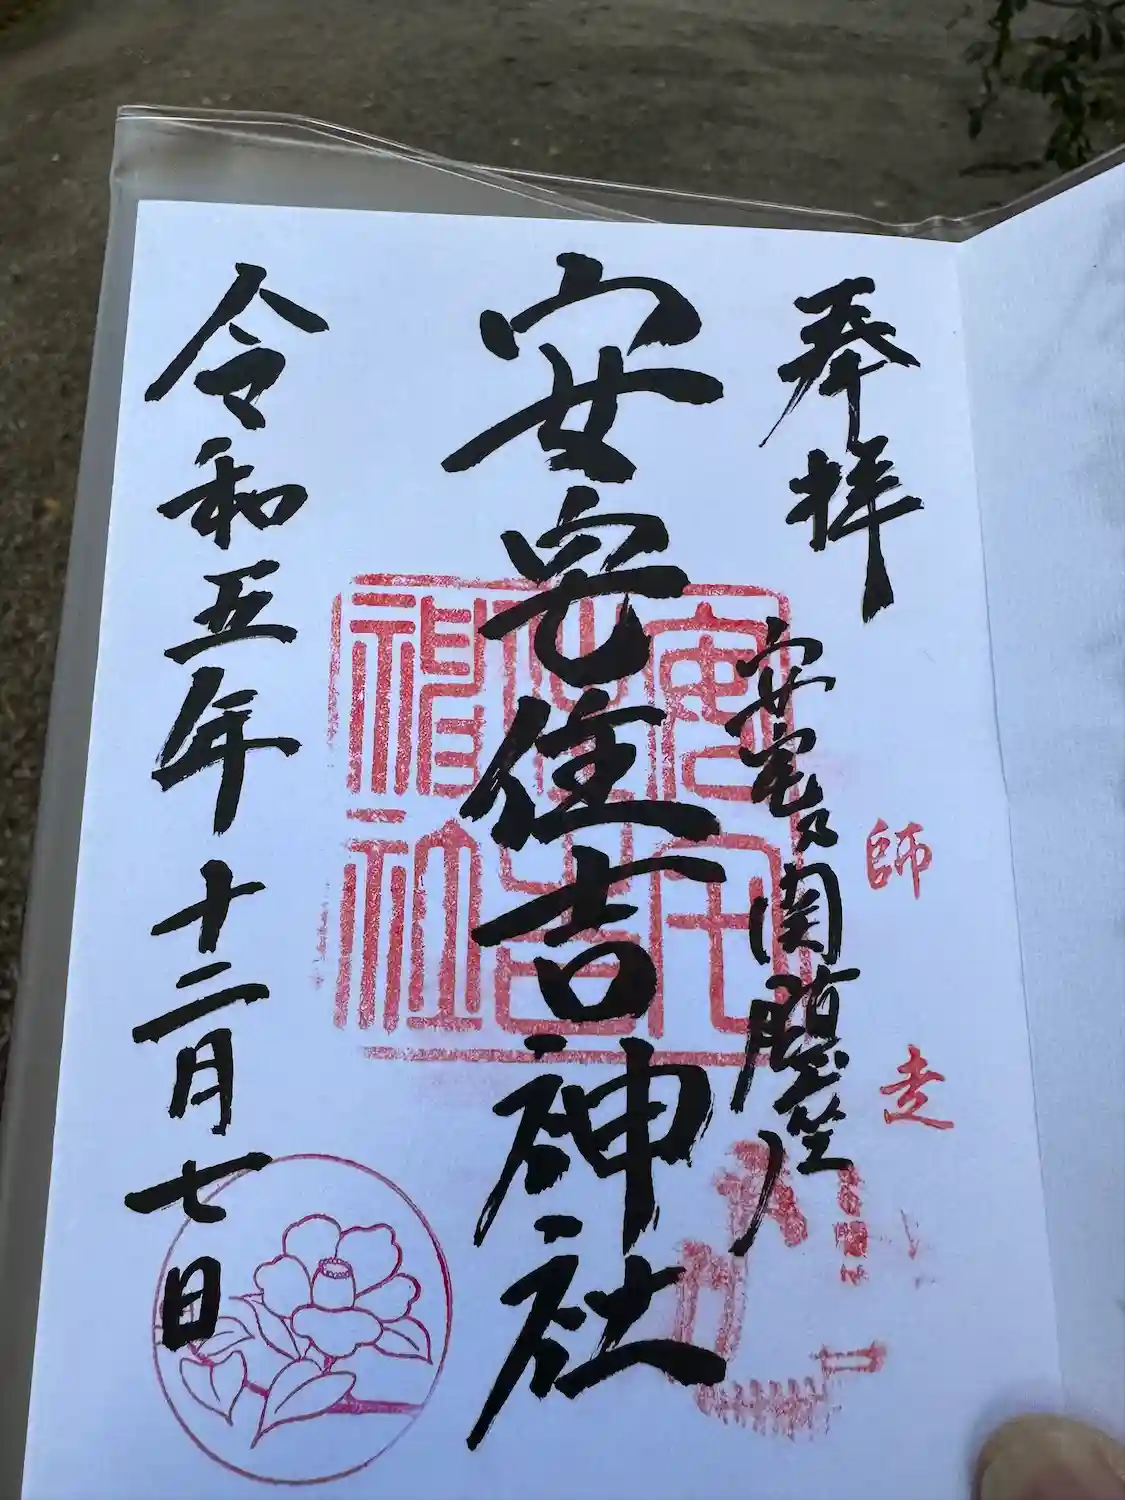 奉拝
師走
安宅乃関鎮座
安宅住吉神社
安宅住吉神社
令和五年十二月七日